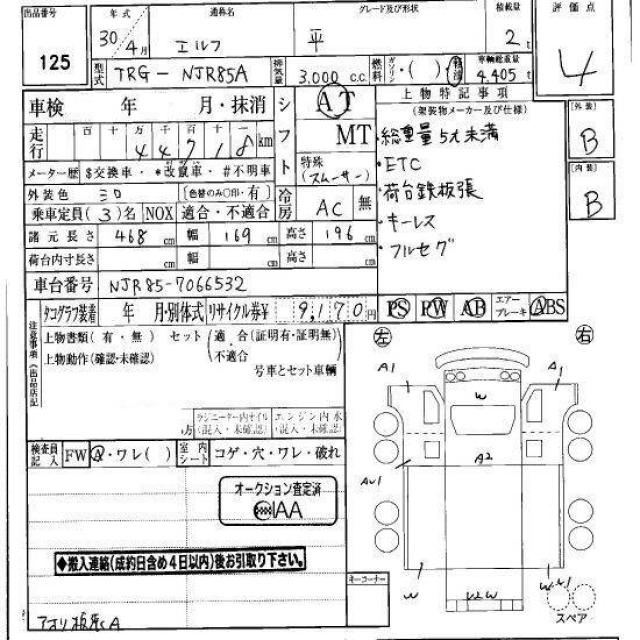 出品番号
125
年式
30年 4月
通称名
エルフ
グレード及び形状
平
積載量
2t
評価点
4
型式
TRG-NJR85A
排気量
3.000 C.C.
燃料
ガソリン・( )・軽油
車輌総重量
4.405t
車検 年 月・抹消
走行
百 十 万 千 百 十 一
44718km
メーター歴 $交換車・*改竄車・#不明車
シフト
AT
MT
特殊
(スムーサー)
上物特記事項
(架装物メーカー及び仕様)
・総重量5t未満
・ETC
・荷台鉄板張
・キーレス
・フルセグ
[外装]
B
[内装]
B
外装色 シロ
[色替のみ○印・有]
乗車定員(3)名 NOX 適合・不適合
冷房 AC 無
諸元長さ 468cm 幅 169cm 高さ 196cm
荷台内寸長さ cm 幅 cm 高さ cm
車台番号 NJR85-7066532
タコグラフ装着 年 月・別体式 リサイクル券¥ 9,170円
PS PW AB エアーブレーキ ABS
注意事項(出品店記
上物書類(有・無) セット(適合(証明有・証明無)
上物動作(確認・未確認) 不適合
号車とセット車輌
ラジエーター内オイル エンジン内水
(混入・未確認) (混入・未確認)
検査員記入 FW A・ワレ( ) 室内シート コゲ・穴・ワレ・破れ
オークション査定済
IAA
◆搬入連絡(成約日含め4日以内)後お引取り下さい。
キーコーナー
アオリ板灰A
左
右
A1
A1
W
A2
AU1
W
W
W1
スペア